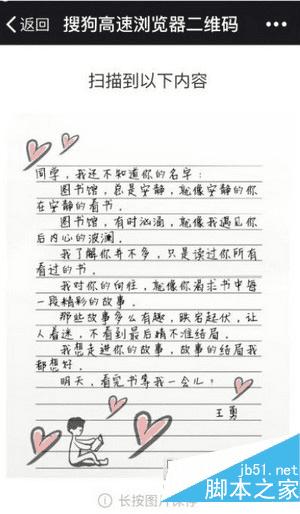 返回 搜狗高速浏览器二维码
扫描到以下内容
同学，我还不知道你的名字：
图书馆，总是安静，就像安静的你
在安静的看书。
图书馆，有时汹涌，就像我遇见你
后内心的波澜。
我了解你并不多，只是读过你所有
看过的书。
我对你的向往，就像你渴求书中每
一段精彩的故事。
那些故事多么有趣，跌宕起伏，让
人着迷，不看到最后猜不准结局。
我想走进你的故事，故事的结局我
都想好。
明天，看完书等我一会儿？
王勇
长按图片保存
jb51.net
脚本之家